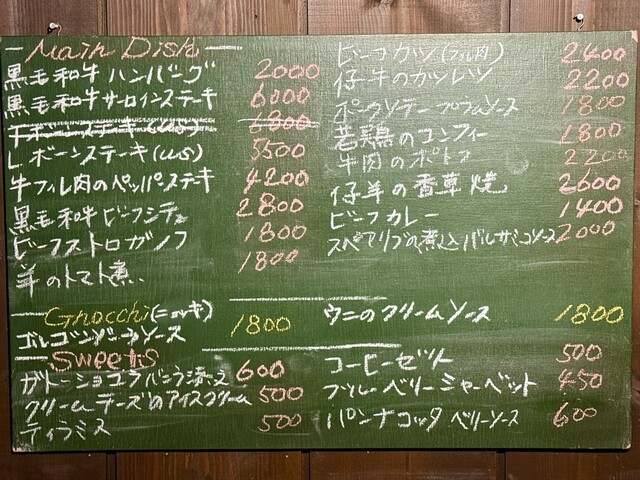 Main Dish
黒毛和牛ハンバーグ 2000
黒毛和牛サーロインステーキ 6000
Tボーンステーキ(US) 6800
Lボーンステーキ(US) 5500
牛フィレ肉のペッパステーキ 4200
黒毛和牛ビーフシチュー 2800
ビーフストロガノフ 1800
羊のトマト煮 1800
ビーフカツ(フィレ肉) 2400
仔牛のカツレツ 2200
ポークソテー ソース 1800
若鶏のコンフィー 1800
牛肉のポトフ 2200
仔羊の香草焼 2600
ビーフカレー 1400
スペアリブの煮込バルサミコソース 2000
Gnocchi(ニョッキ)
ゴルゴンゾーラソース 1800
ウニのクリームソース 1800
Sweets
ガトーショコラバニラ添え 600
クリームチーズのアイスクリーム 500
ティラミス 500
コーヒーゼリー 500
ブルーベリーシャーベット 450
パンナコッタ ベリーソース 600